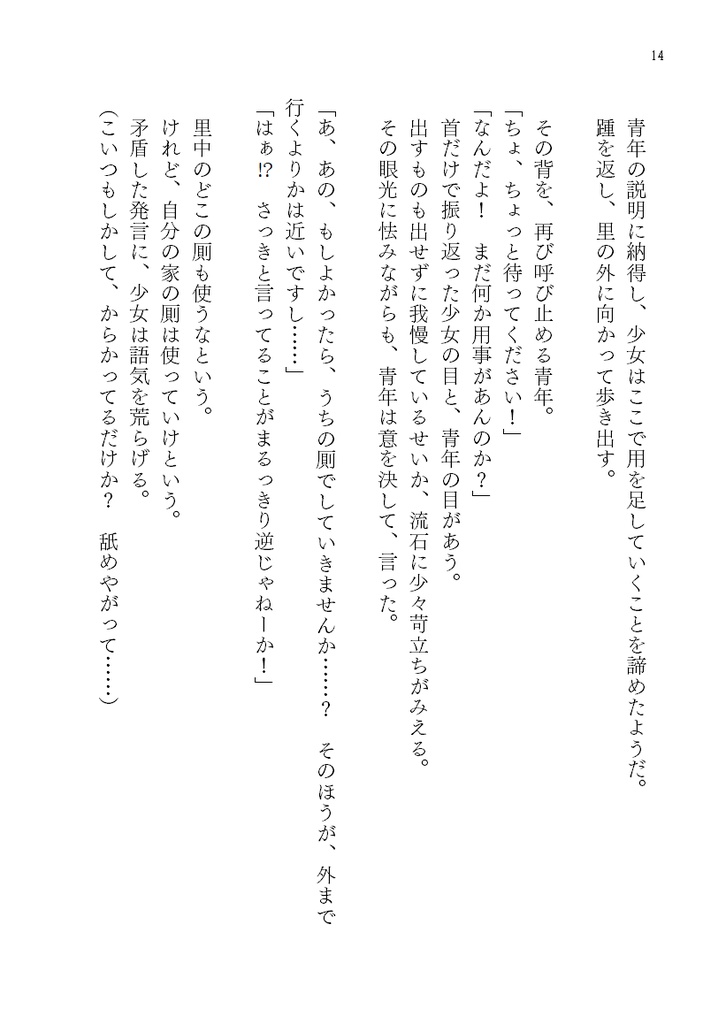 14
青年の説明に納得し、少女はここで用を足していくことを諦めたようだ。
踵を返し、里の外に向かって歩き出す。
その背を、再び呼び止める青年。
「ちょ、ちょっと待ってください！」
「なんだよ！　まだ何か用事があんのか？」
首だけで振り返った少女の目と、青年の目があう。
出すものも出せずに我慢しているせいか、流石に少々苛立ちがみえる。
その眼光に怯みながらも、青年は意を決して、言った。
「あ、あの、もしよかったら、うちの厠でしていきませんか……？　そのほうが、外まで
行くよりかは近いですし……」
「はぁ!?　さっきと言ってることがまるっきり逆じゃねーか！」
里中のどこの厠も使うなという。
けれど、自分の家の厠は使っていけという。
矛盾した発言に、少女は語気を荒らげる。
（こいつもしかして、からかってるだけか？　舐めやがって……）